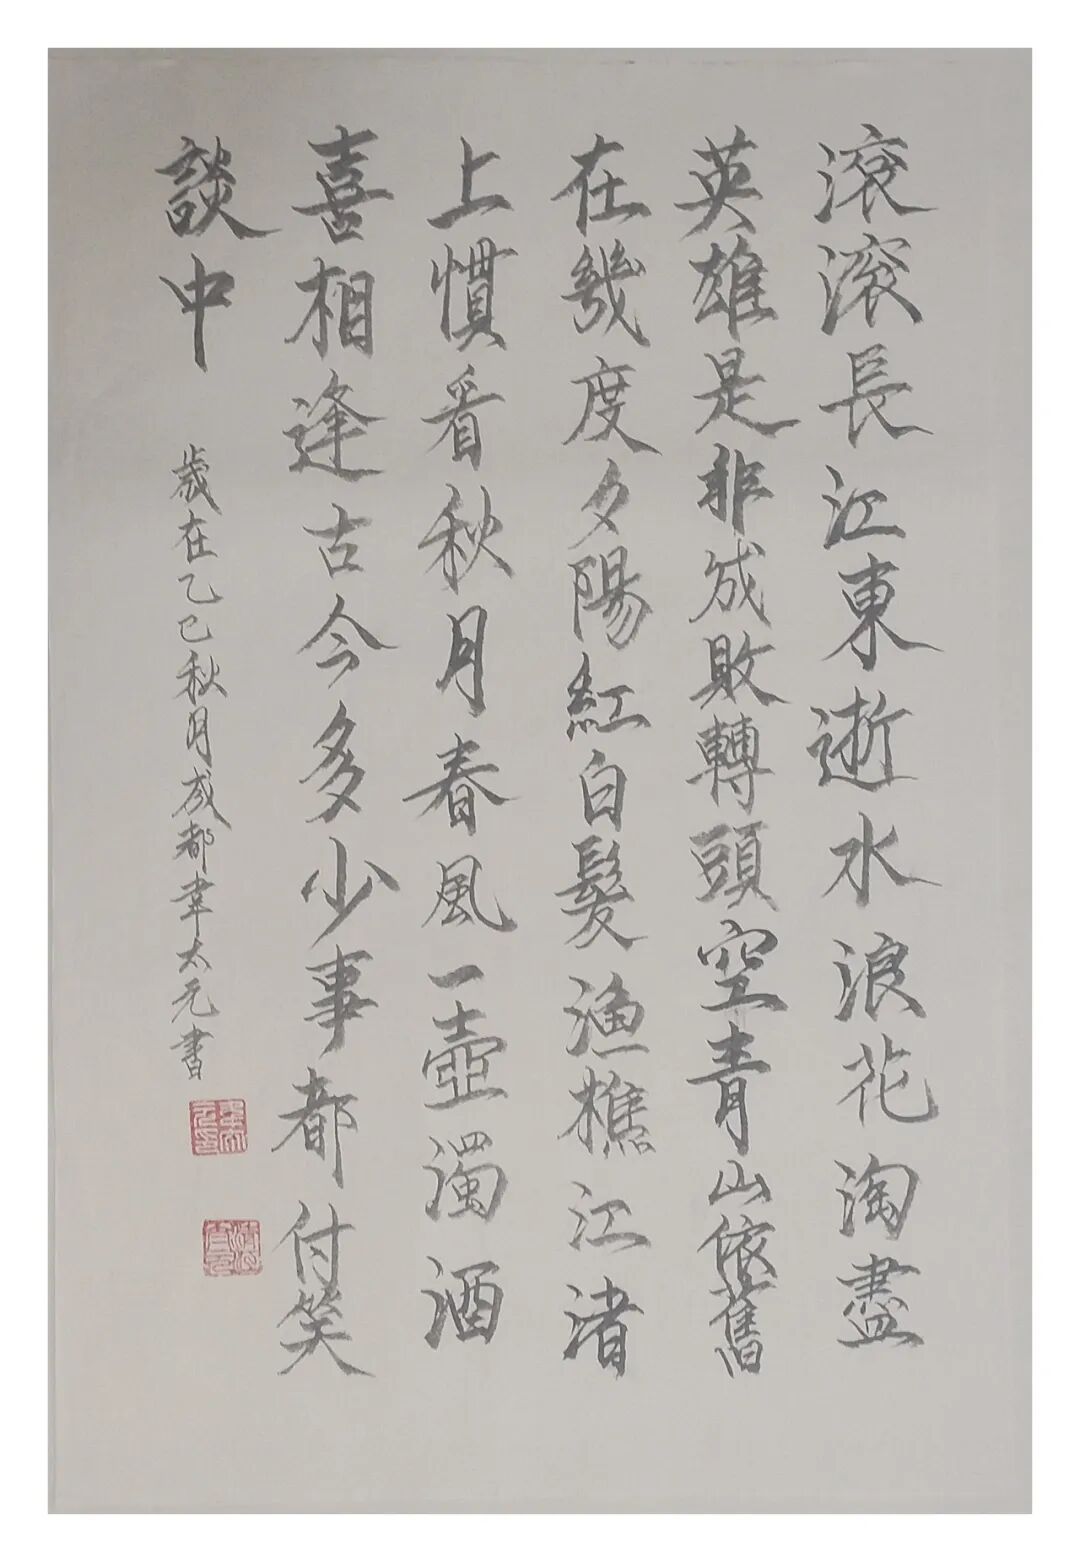 滾滾長江東逝水浪花淘盡
英雄是非成敗轉頭空青山依舊
在幾度夕陽紅白髮漁樵江渚
上慣看秋月春風一壺濁酒
喜相逢古今多少事都付笑
談中
歲在乙巳秋月成都韋太元書